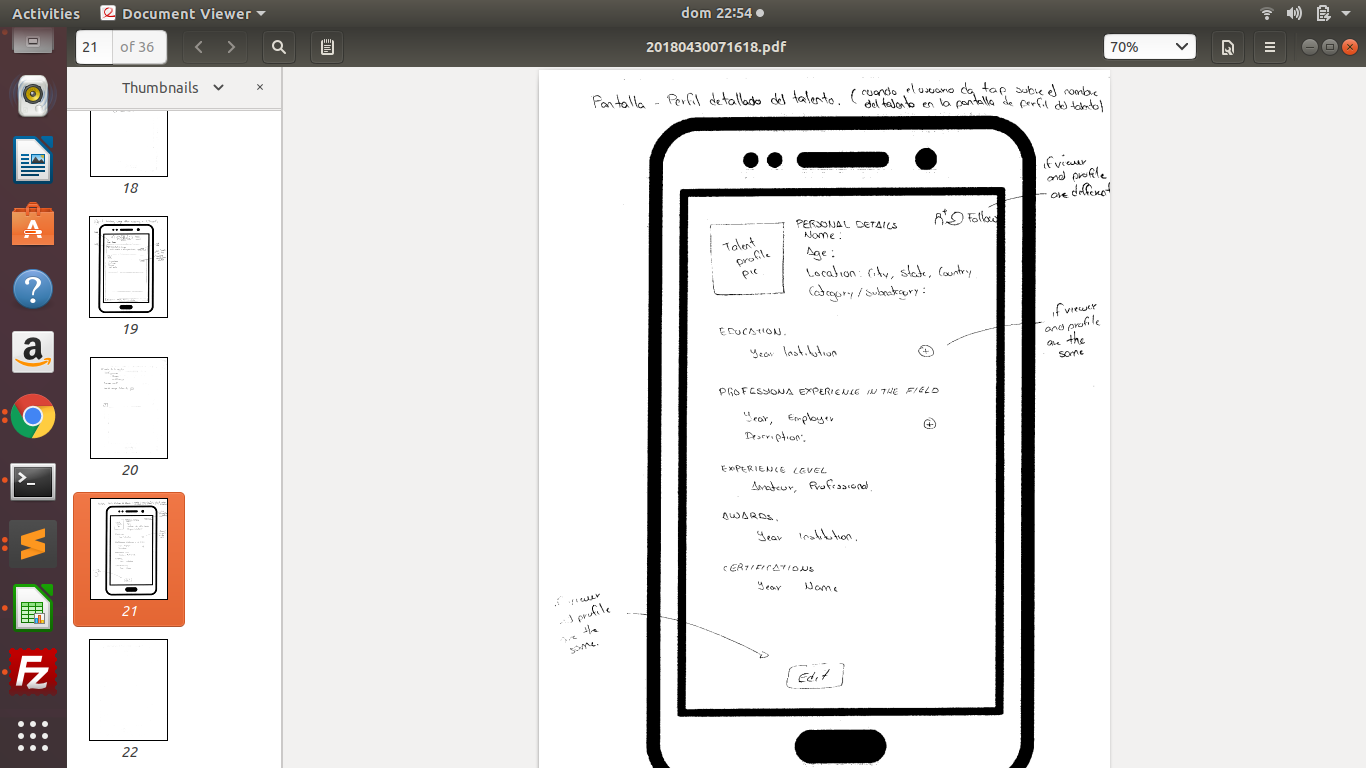 Activities
Document Viewer
dom 22:54
21 of 36
20180430071618.pdf
70%
Thumbnails
×
18
19
20
21
22
Pantalla - Perfil detallado del talento. (cuando el usuario da tap sobre el nombre
del talento en la pantalla de perfil del talento)
if viewer
and profile
are different
Follow
Talent
profile
pic
PERSONAL DETAILS
Name:
Age:
Location: City, State, Country
Category/subcategory:
if viewer
and profile
are the
same
EDUCATION.
Year Institution
+
PROFESSIONA EXPERIENCE IN THE FIELD
Year, Employer
Description:
+
EXPERIENCE LEVEL
Amateur, Professional.
AWARDS.
Year Institution.
CERTIFICATIONS
Year Name
if viewer
profile
the
same.
Edit